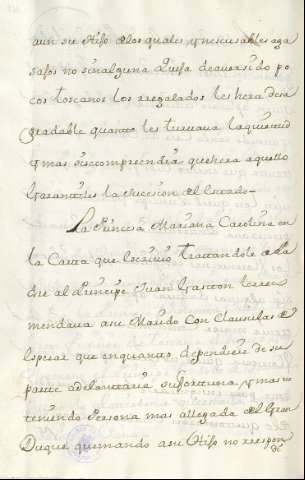 aun su Hijo a los quales, y nescusables aga
sajos no sin alguna quexa de averse sido po
cos toscanos los regalados les hera desa
gradable quanto les turbava la quietud
y mas si se comprendia que hera aquello
la sucesion del Estado
La Princesa Mariana Carolina en
la Carta que escrivio tratandole
al Principe Juan Gaston le reco
mendava a su Marido con clausulas de
esperar que en quanto dependiese de su
parte adelantaria su fortuna, y mas no
teniendo Persona mas allegada el Gran
Duque que mando a su Hijo no respon
de